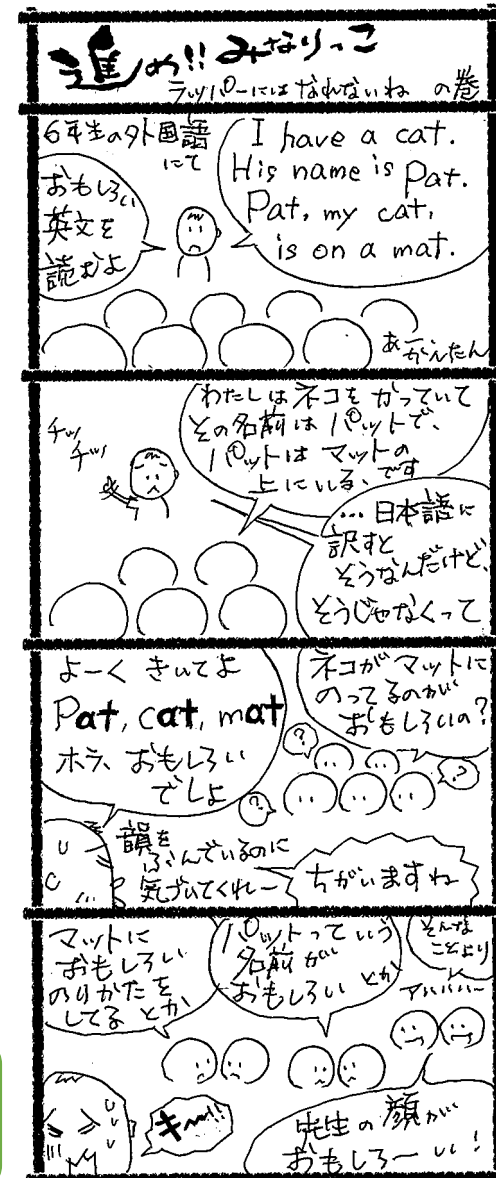 進め!! みなりっこ
ラッパーにはなれないね の巻
6年生の外国語
にて
I have a cat.
His name is Pat.
Pat, my cat,
is on a mat.
おもしろい
英文を
読むよ
あーかんたん
わたしはネコをかっていて
その名前はパットで、
パットはマットの
上にいる、です
チッ
チッ
…日本語に
訳すと
そうなんだけど、
そうじゃなくって
よーくきいてよ
Pat, cat, mat
ホラ、おもしろい
でしょ
ネコがマットに
のってるのが
おもしろいの?
?
?
?
韻を
ふんでいるのに
気づいてくれー
ちがいますね
マットに
おもしろい
のりかたを
してる とか
パットっていう
名前が
おもしろい とか
そんな
ことより
アハハハー
キー!!
先生の顔が
おもしろーい!